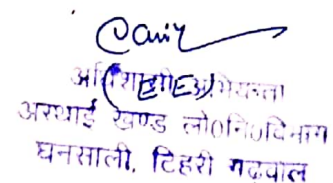 अधिशाषी अभियन्ता
(EE)
अस्थाई खण्ड लो०नि०विभाग
घनसाली, टिहरी गढ़वाल